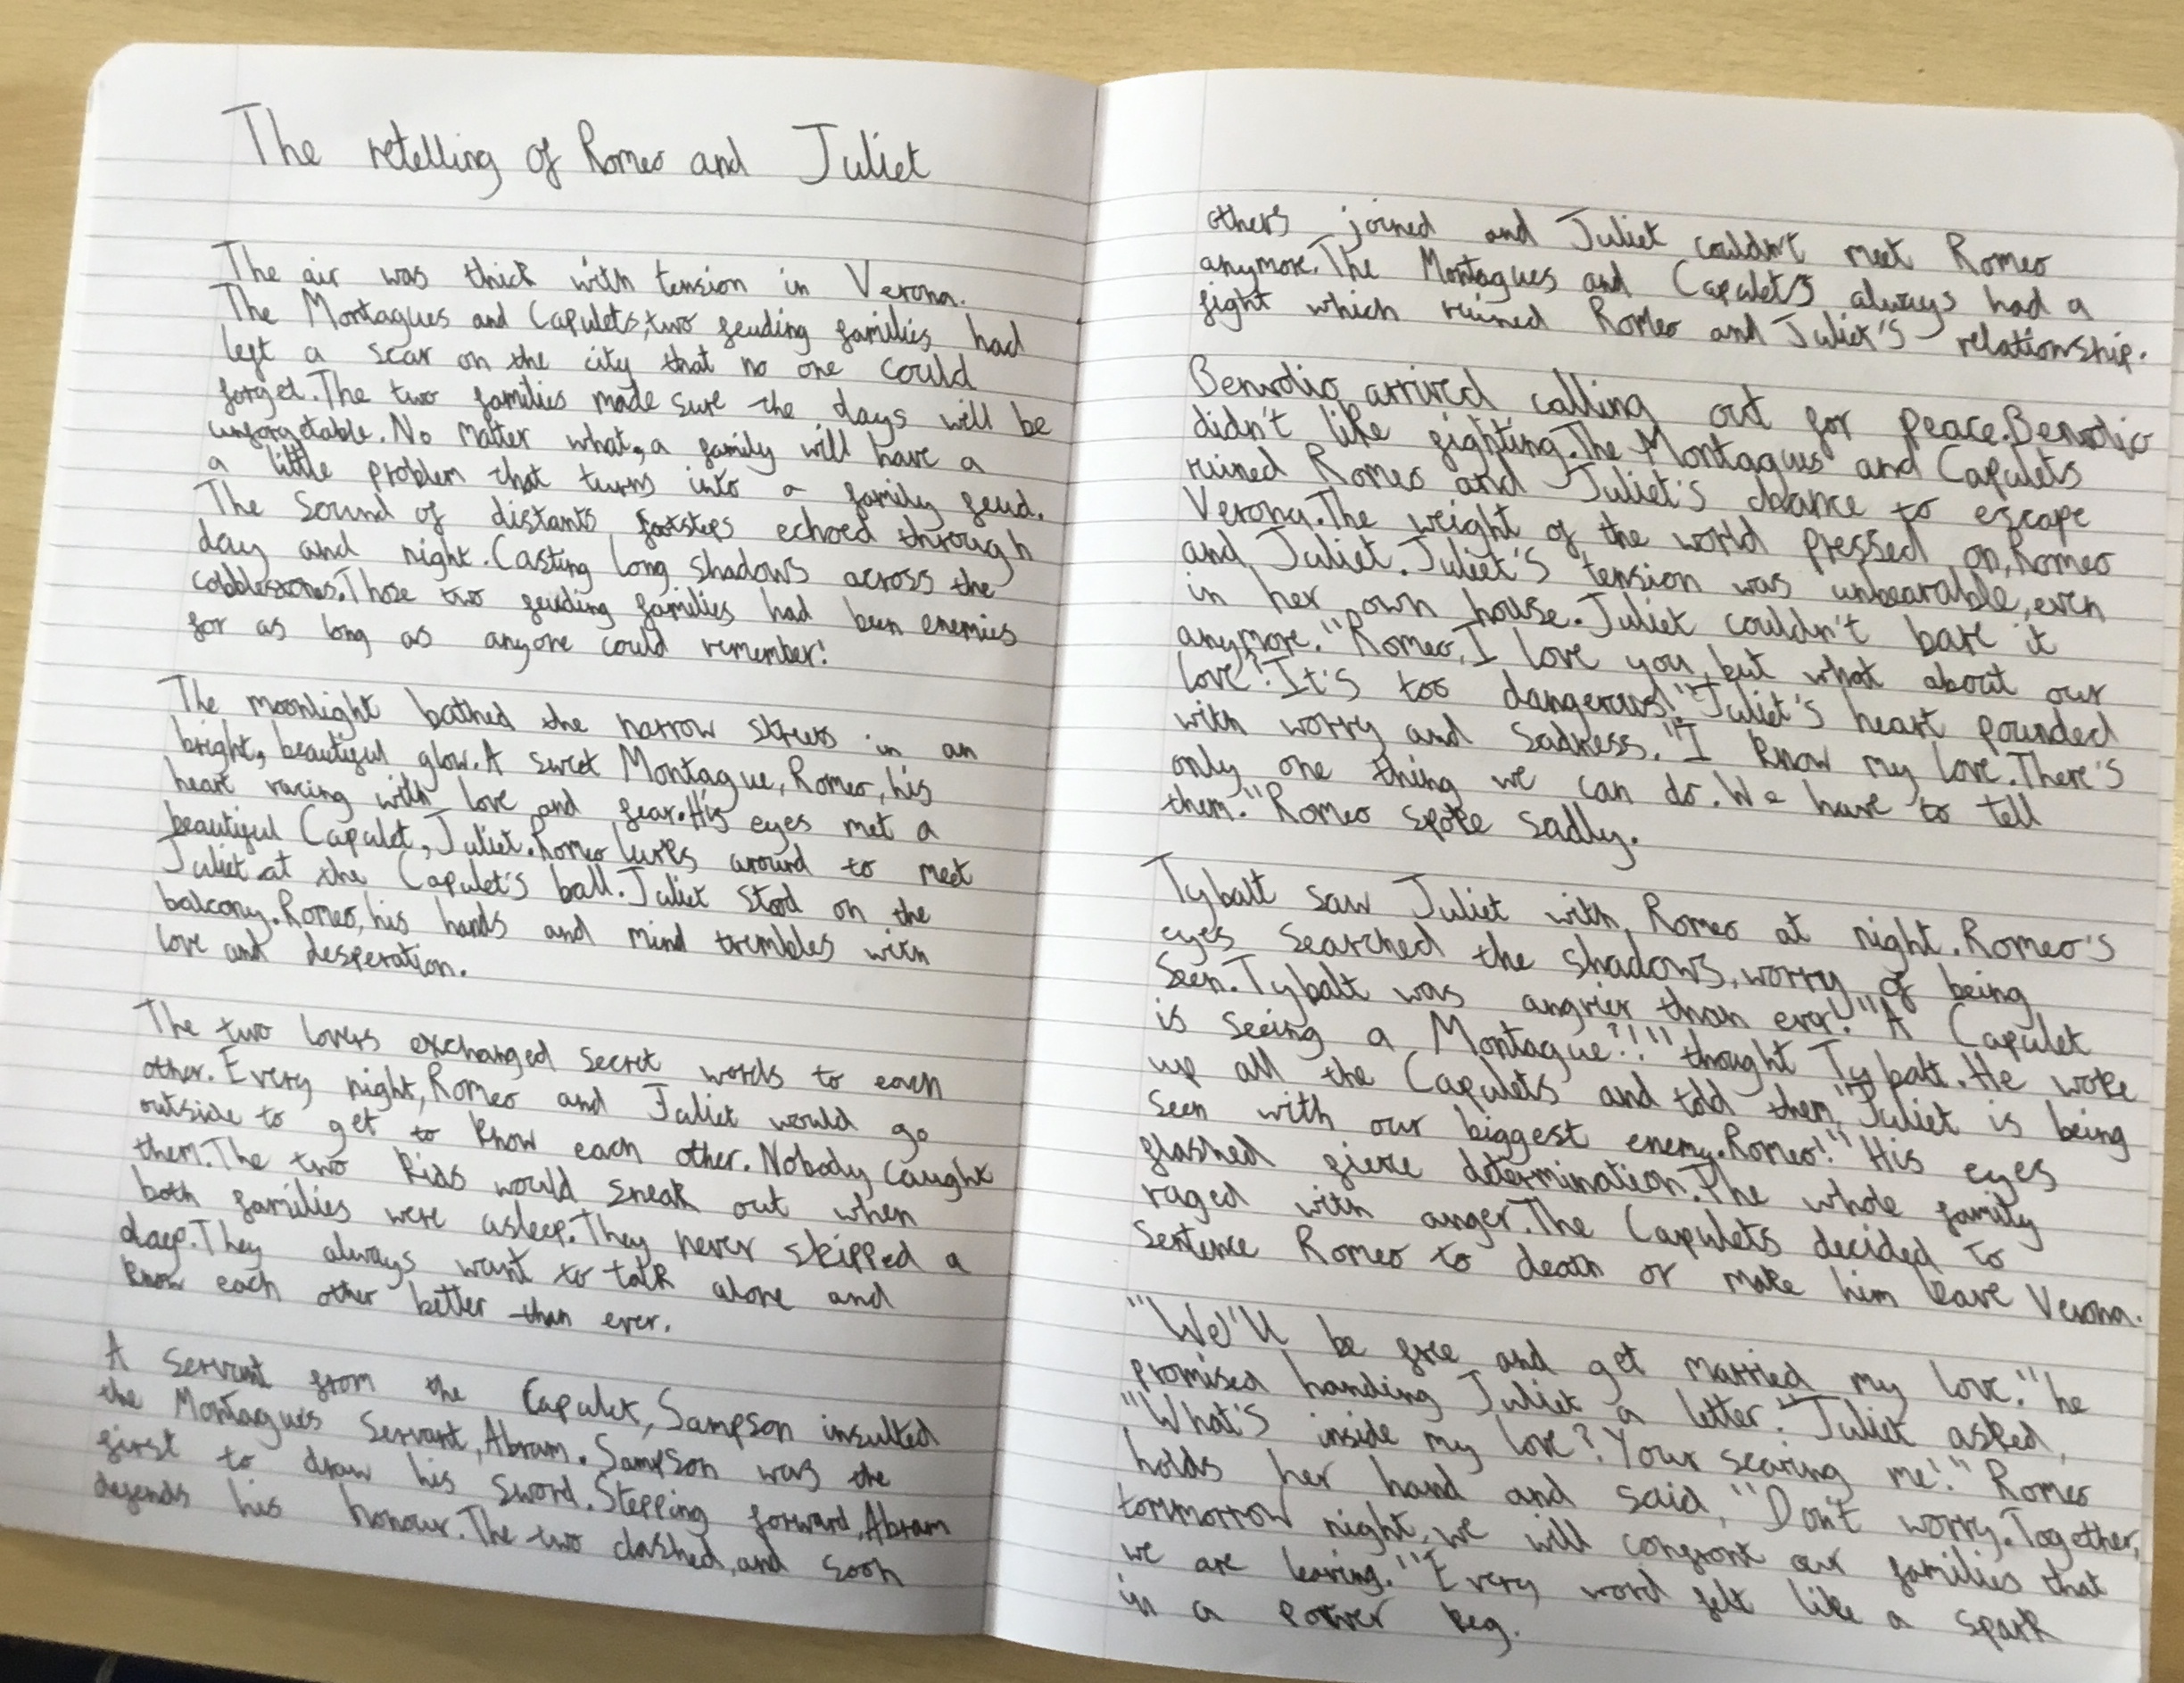 The retelling of Romeo and Juliet
The air was thick with tension in Verona.
The Montagues and Capulets, two feuding families had
left a scar on the city that no one could
forget. The two families made sure the days will be
unforgetable. No matter what, a family will have a
a little problem that turns into a family feud.
The sound of distants footsteps echoed through
day and night. Casting long shadows across the
cobblestones. Those two feuding families had been enemies
for as long as anyone could remember!
The moonlight bathed the narrow streets in an
bright, beautiful glow. A sweet Montague, Romeo, his
heart racing with love and fear. His eyes met a
beautiful Capulet, Juliet. Romeo lurks around to meet
Juliet at the Capulet's ball. Juliet stood on the
balcony. Romeo, his hands and mind trembles with
love and desperation.
The two lovers exchanged secret words to each
other. Every night, Romeo and Juliet would go
outside to get to know each other. Nobody caught
them. The two kids would sneak out when
both families were asleep. They never skipped a
day. They always want to talk alone and
know each other better than ever.
A servant from the Capulet, Sampson insulted
the Montagues servant, Abram. Sampson was the
first to draw his sword. Stepping forward, Abram
defends his honour. The two clashed, and soon
others joined and Juliet couldn't meet Romeo
anymore. The Montagues and Capulets always had a
fight which ruined Romeo and Juliet's relationship.
Benvolio arrived calling out for peace. Benvolio
didn't like fighting. The Montagues and Capulets
ruined Romeo and Juliet's chance to escape
Verona. The weight of the world pressed on, Romeo
and Juliet. Juliet's tension was unbearable, even
in her own house. Juliet couldn't bare it
anymore. "Romeo, I love you, but what about our
love? It's too dangerous!" Juliet's heart pounded
with worry and sadness. "I know my love. There's
only one thing we can do. We have to tell
them." Romeo spoke sadly.
Tybalt saw Juliet with Romeo at night. Romeo's
eyes searched the shadows, worry of being
seen. Tybalt was angrier than ever! "A Capulet
is seeing a Montague?!" thought Tybalt. He woke
up all the Capulets and told them, "Juliet is being
seen with our biggest enemy. Romeo!" His eyes
flashed fierce determination. The whole family
raged with anger. The Capulets decided to
sentence Romeo to death or make him leave Verona.
"We'll be free and get married my love." he
promised handing Juliet a letter. Juliet asked,
"What's inside my love? Your scaring me!" Romeo
holds her hand and said, "Don't worry. Together,
tommorrow night, we will confront our families that
we are leaving." Every word felt like a spark
in a power keg.